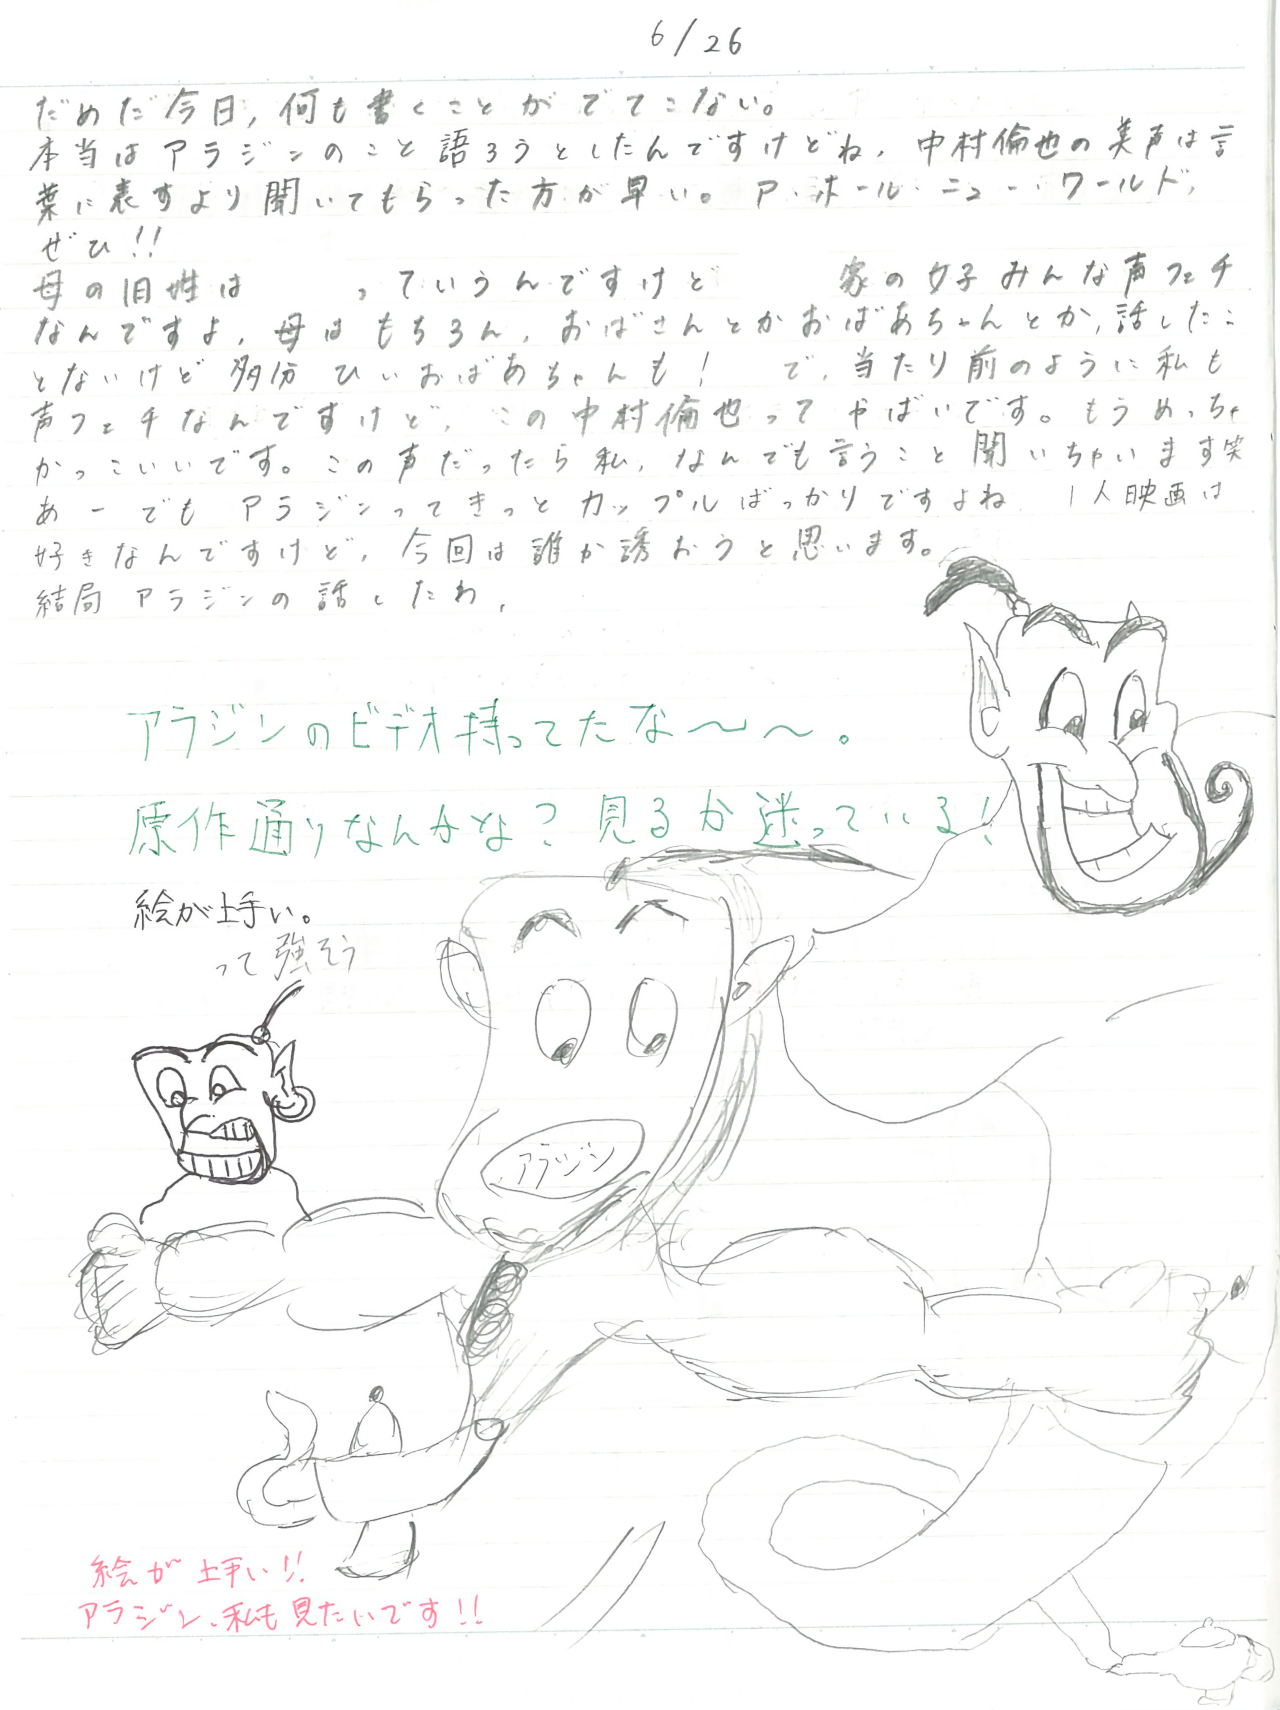 6/26
だめだ今日,何も書くことがでてこない。
本当はアラジンのこと語ろうとしたんですけどね,中村倫也の美声は言
葉に表すより聞いてもらった方が早い。ア・ホール・ニュー・ワールド,
ぜひ!!
母の旧姓は　　　っていうんですけど　　　家の女子みんな声フェチ
なんですよ,母はもちろん,おばさんとかおばあちゃんとか,話したこ
とないけど多分ひいおばあちゃんも!　で,当たり前のように私も
声フェチなんですけど,この中村倫也ってやばいです。もうめっちゃ
かっこいいです。この声だったら私,なんでも言うこと聞いちゃいます笑
あーでもアラジンってきっとカップルばっかりですよね　1人映画は
好きなんですけど,今回は誰か誘おうと思います。
結局アラジンの話したわ,
アラジンのビデオ持ってたな〜〜。
原作通りなんかな?見るか迷っている!
絵が上手い。
って強そう
アラジン
絵が上手い!!
アラジン、私も見たいです!!